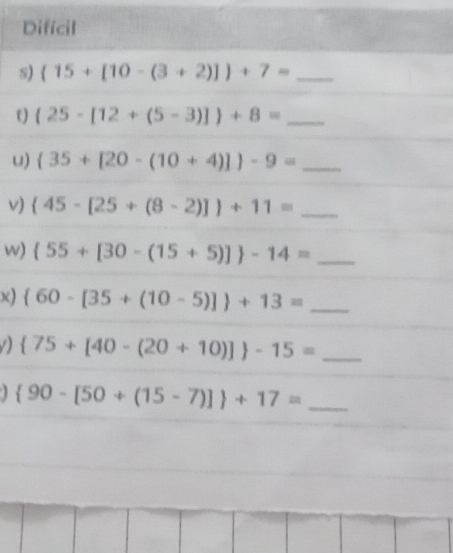 Difícil
s) { 15 + [10 - (3 + 2)] } + 7 = ____
t) { 25 - [12 + (5 - 3)] } + 8 = ____
u) { 35 + [20 - (10 + 4)] } - 9 = ____
v) { 45 - [25 + (8 - 2)] } + 11 = ____
w) { 55 + [30 - (15 + 5)] } - 14 = ____
x) { 60 - [35 + (10 - 5)] } + 13 = ____
y) { 75 + [40 - (20 + 10)] } - 15 = ____
) { 90 - [50 + (15 - 7)] } + 17 = ____